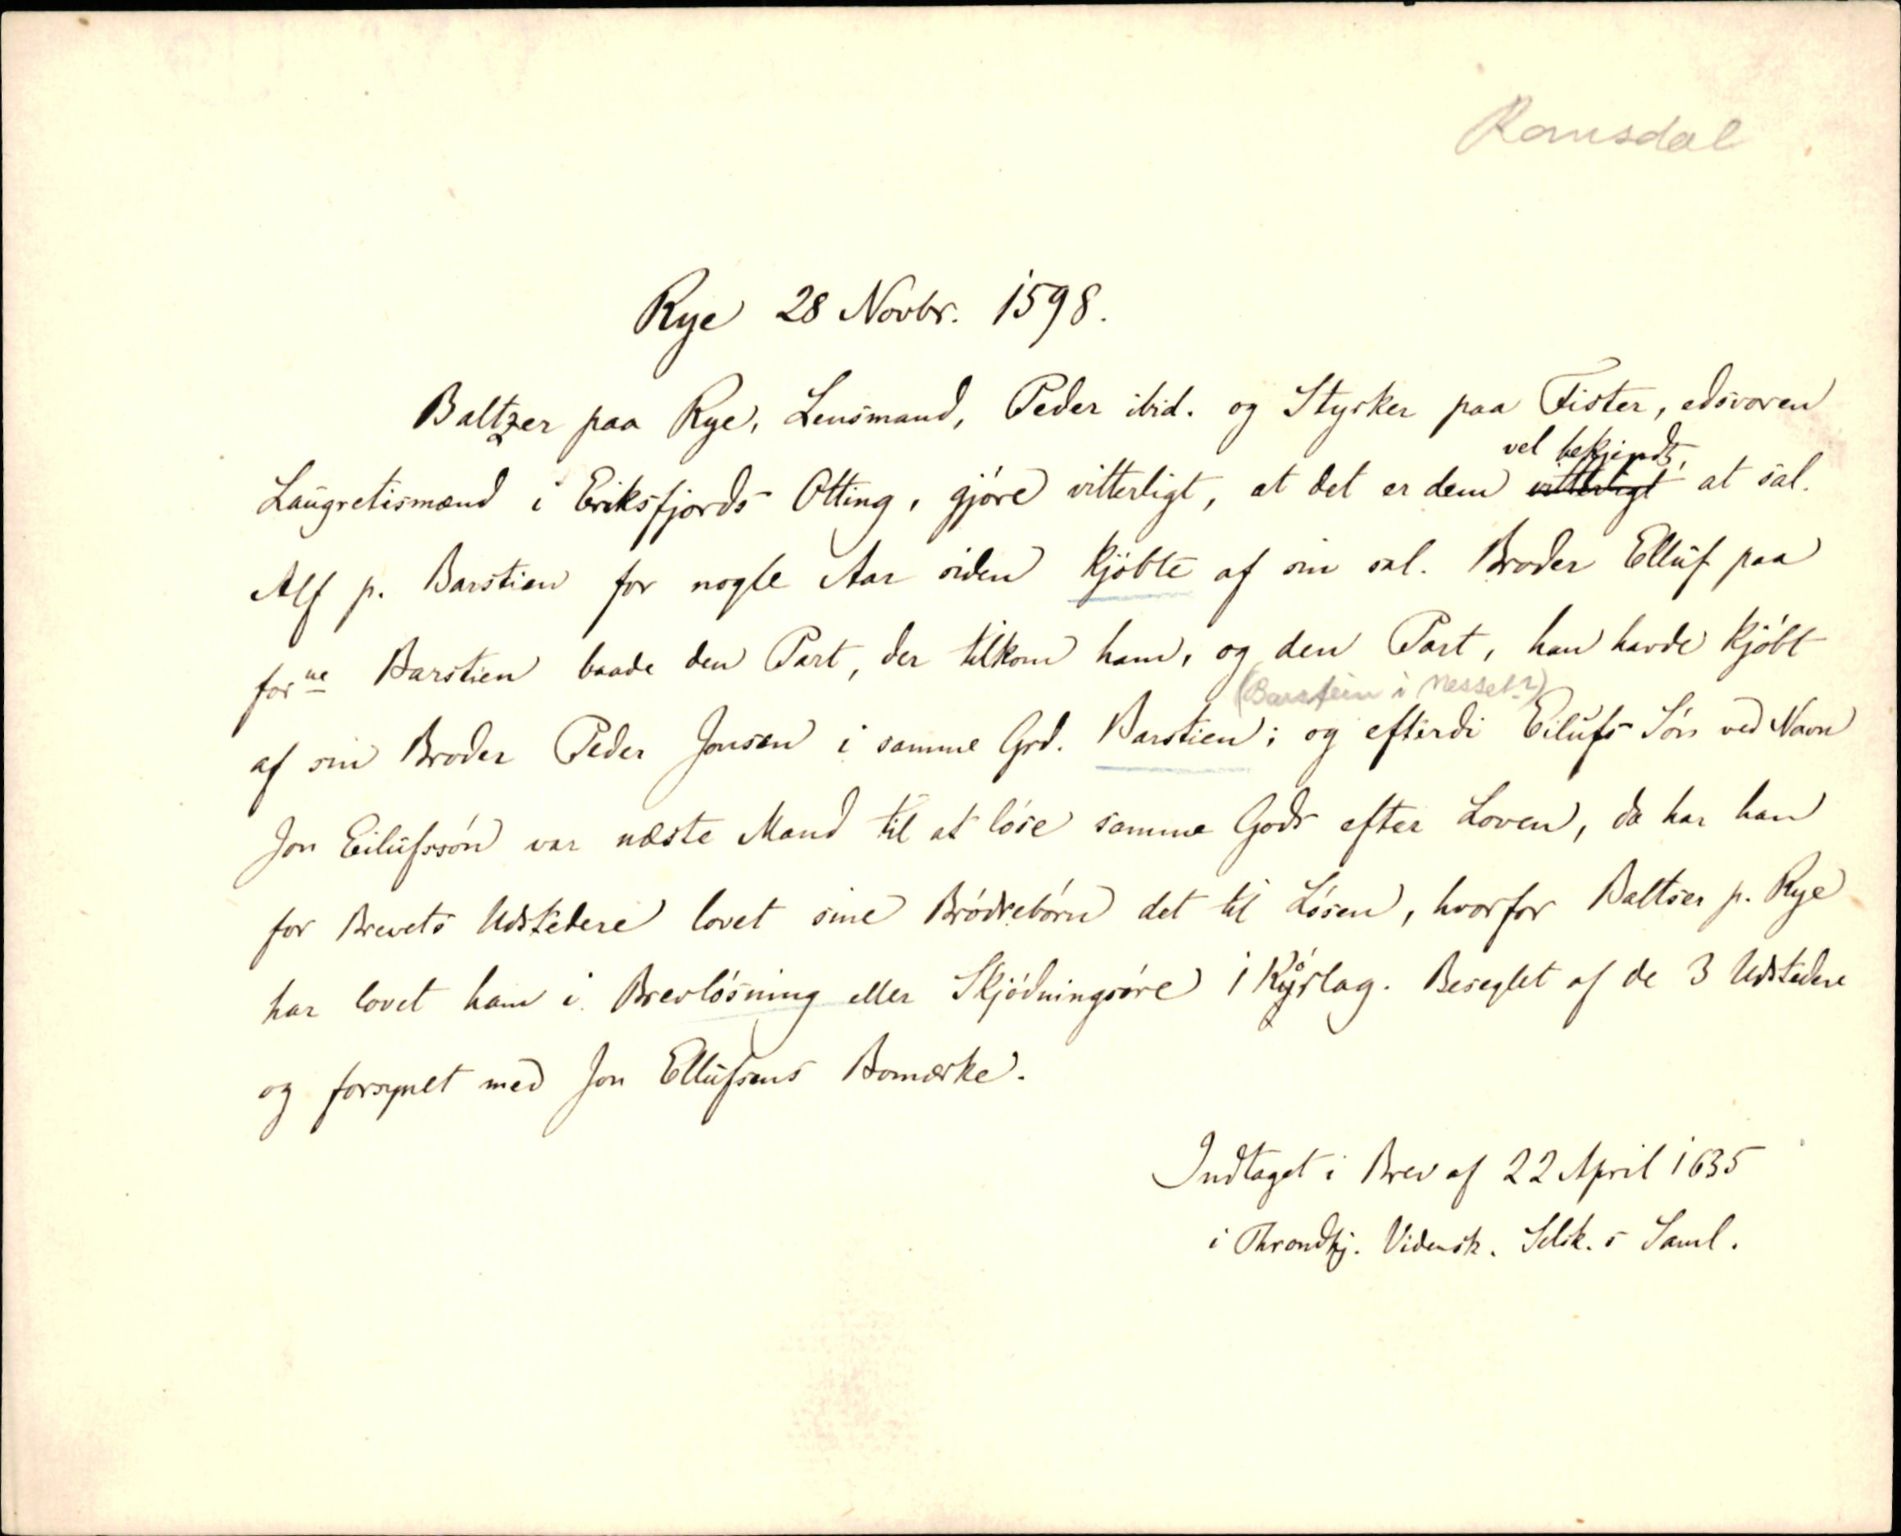 Romsdal
Rye 28 Novbr. 1598.
Baltzer paa Rye, Lensmand, Peder ibid. og Styrker paa Fister, edsvoren
vel bekjendt,
Laugretismænd i Eriksfjords Otting, gjöre vitterligt, at det er dem vitterligt at sal.
Alf p. Barstien for nogle Aar siden kjöbte af sin sal. Broder Elluf paa
forne Barstien baade den Part, der tilkom ham, og den Part, han havde kjöbt
(Barstein i Nesset?)
af sin Broder Peder Jonsen i samme Grd. Barstien; og efterdi Eilufs Sön ved Navn
Jon Eilufssön var næste Mand til at löse samme Gods efter Loven, da har han
for Brevets Udstedere lovet sine Brödrebörn det til Lösen, hvorfor Baltser p. Rye
har lovet ham i Brevlösning eller Skjödningsöre 1 Kýrlag. Beseglet af de 3 Udstedere
og forsynet med Jon Ellufsens Bomærke.
Indtaget i Brev af 22 April 1635
i Throndhj. Vidensk. Selsk.s Saml.